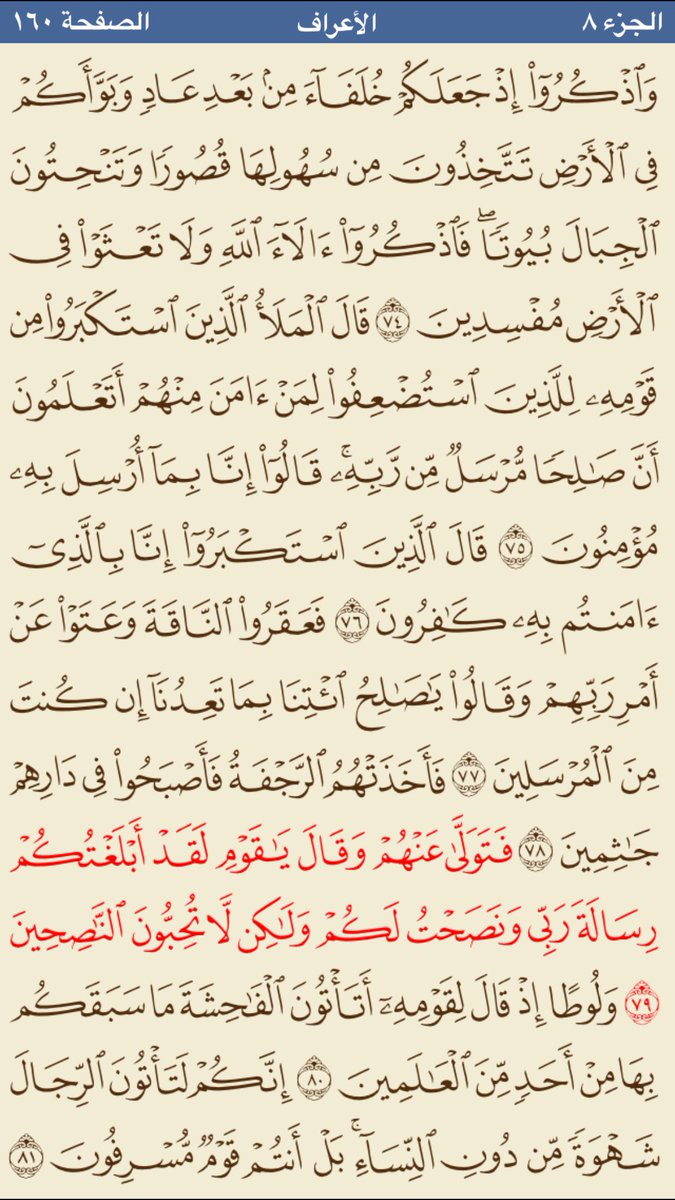 الجزء ٨ الأعراف الصفحة ١٦٠
وَٱذْكُرُوٓا۟ إِذْ جَعَلَكُمْ خُلَفَآءَ مِنۢ بَعْدِ عَادٍ وَبَوَّأَكُمْ
فِى ٱلْأَرْضِ تَتَّخِذُونَ مِن سُهُولِهَا قُصُورًا وَتَنْحِتُونَ
ٱلْجِبَالَ بُيُوتًا ۖ فَٱذْكُرُوٓا۟ ءَالَآءَ ٱللَّهِ وَلَا تَعْثَوْا۟ فِى
ٱلْأَرْضِ مُفْسِدِينَ ٧٤ قَالَ ٱلْمَلَأُ ٱلَّذِينَ ٱسْتَكْبَرُوا۟ مِن
قَوْمِهِۦ لِلَّذِينَ ٱسْتُضْعِفُوا۟ لِمَنْ ءَامَنَ مِنْهُمْ أَتَعْلَمُونَ
أَنَّ صَـٰلِحًا مُّرْسَلٌ مِّن رَّبِّهِۦ ۚ قَالُوٓا۟ إِنَّا بِمَآ أُرْسِلَ بِهِۦ
مُؤْمِنُونَ ٧٥ قَالَ ٱلَّذِينَ ٱسْتَكْبَرُوٓا۟ إِنَّا بِٱلَّذِىٓ
ءَامَنتُم بِهِۦ كَـٰفِرُونَ ٧٦ فَعَقَرُوا۟ ٱلنَّاقَةَ وَعَتَوْا۟ عَنْ
أَمْرِ رَبِّهِمْ وَقَالُوا۟ يَـٰصَـٰلِحُ ٱئْتِنَا بِمَا تَعِدُنَآ إِن كُنتَ
مِنَ ٱلْمُرْسَلِينَ ٧٧ فَأَخَذَتْهُمُ ٱلرَّجْفَةُ فَأَصْبَحُوا۟ فِى دَارِهِمْ
جَـٰثِمِينَ ٧٨ فَتَوَلَّىٰ عَنْهُمْ وَقَالَ يَـٰقَوْمِ لَقَدْ أَبْلَغْتُكُمْ
رِسَالَةَ رَبِّى وَنَصَحْتُ لَكُمْ وَلَـٰكِن لَّا تُحِبُّونَ ٱلنَّـٰصِحِينَ
٧٩ وَلُوطًا إِذْ قَالَ لِقَوْمِهِۦٓ أَتَأْتُونَ ٱلْفَـٰحِشَةَ مَا سَبَقَكُم
بِهَا مِنْ أَحَدٍ مِّنَ ٱلْعَـٰلَمِينَ ٨٠ إِنَّكُمْ لَتَأْتُونَ ٱلرِّجَالَ
شَهْوَةً مِّن دُونِ ٱلنِّسَآءِ ۚ بَلْ أَنتُمْ قَوْمٌ مُّسْرِفُونَ ٨١